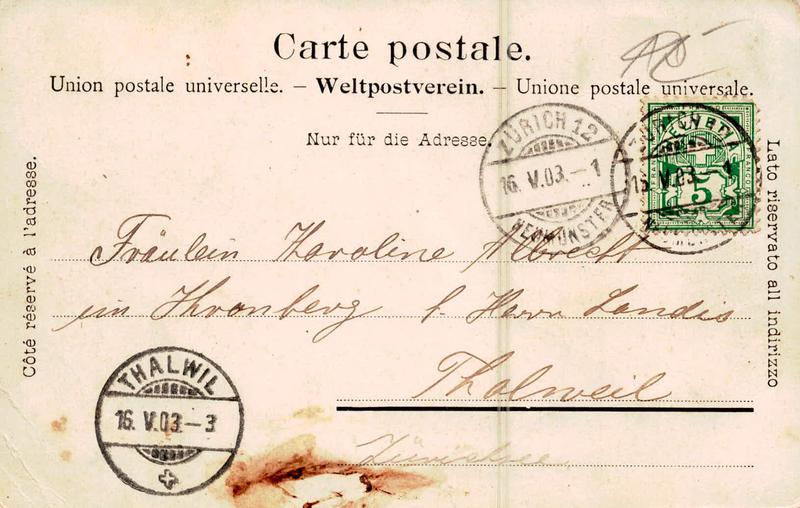 Carte postale.
Union postale universelle. – Weltpostverein. – Unione postale universale.
Nur für die Adresse.
ZÜRICH 12
16. V. 03. – 1
NEUMÜNSTER
HELVETIA
5
FRANCO
16. V. 03. – 1
Côté réservé à l'adresse.
Lato riservato all indirizzo
Fräulein Karoline Albrecht
im Thronberg b. Herrn Landis
Thalweil
Zürichsee
THALWIL
16. V. 03. – 3